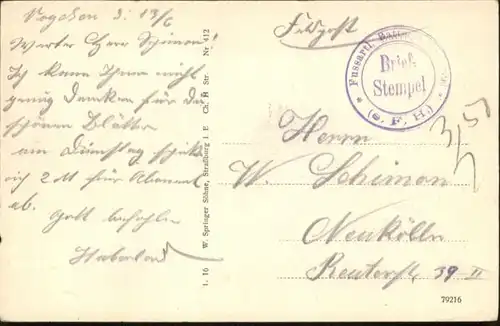 Vogesen d. 13/6
Werter Herr Schimon!
Ich kann Ihnen nicht
genug danken für die
schönen Blätter
am Dienstag
ich 2 M für
ab.
Gott befohlen
Haberland
1. 16 W. Springer Söhne, Straßburg i. E. Ch. H Str. Nr 412
Feldpost
Fussartl. Batterie
Brief-
Stempel
(s. F. H.)
Herrn
W. Schimon
Neukölln
Reuterstr. 39 II
79216